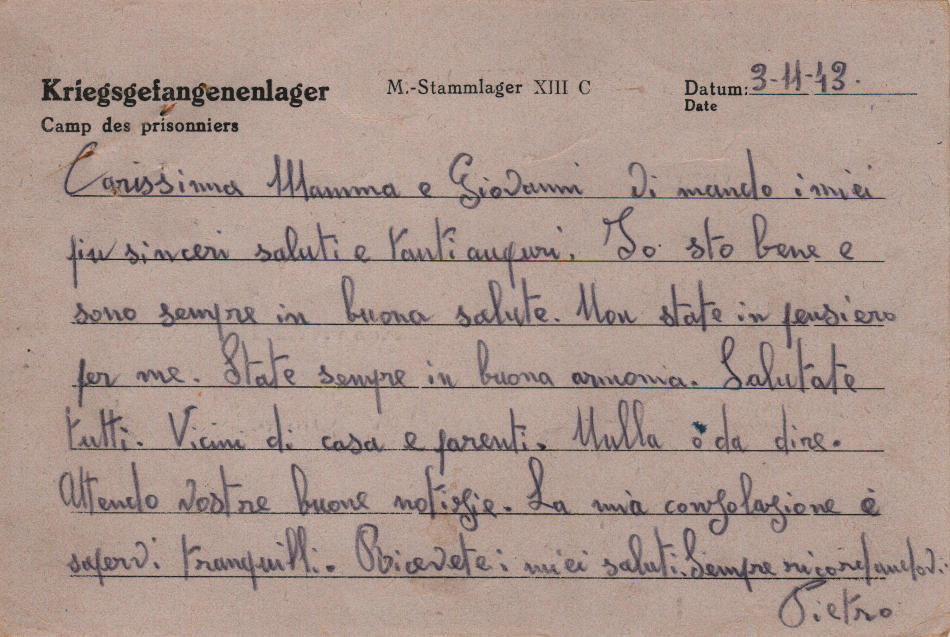 Kriegsgefangenenlager M.-Stammlager XIII C Datum: 3-11-43.
Camp des prisonniers Date
Carissima Mamma e Giovanni Vi mando i miei
piu sinceri saluti e tanti auguri. Io sto bene e
sono sempre in buona salute. Non state in pensiero
per me. State sempre in buona armonia. Salutate
tutti. Vicini di casa e parenti. Nulla ò da dire.
Attendo vostre buone notizie. La mia consolazione è
sapervi tranquilli. Ricevete i miei saluti. Sempre ricordandovi.
Pietro